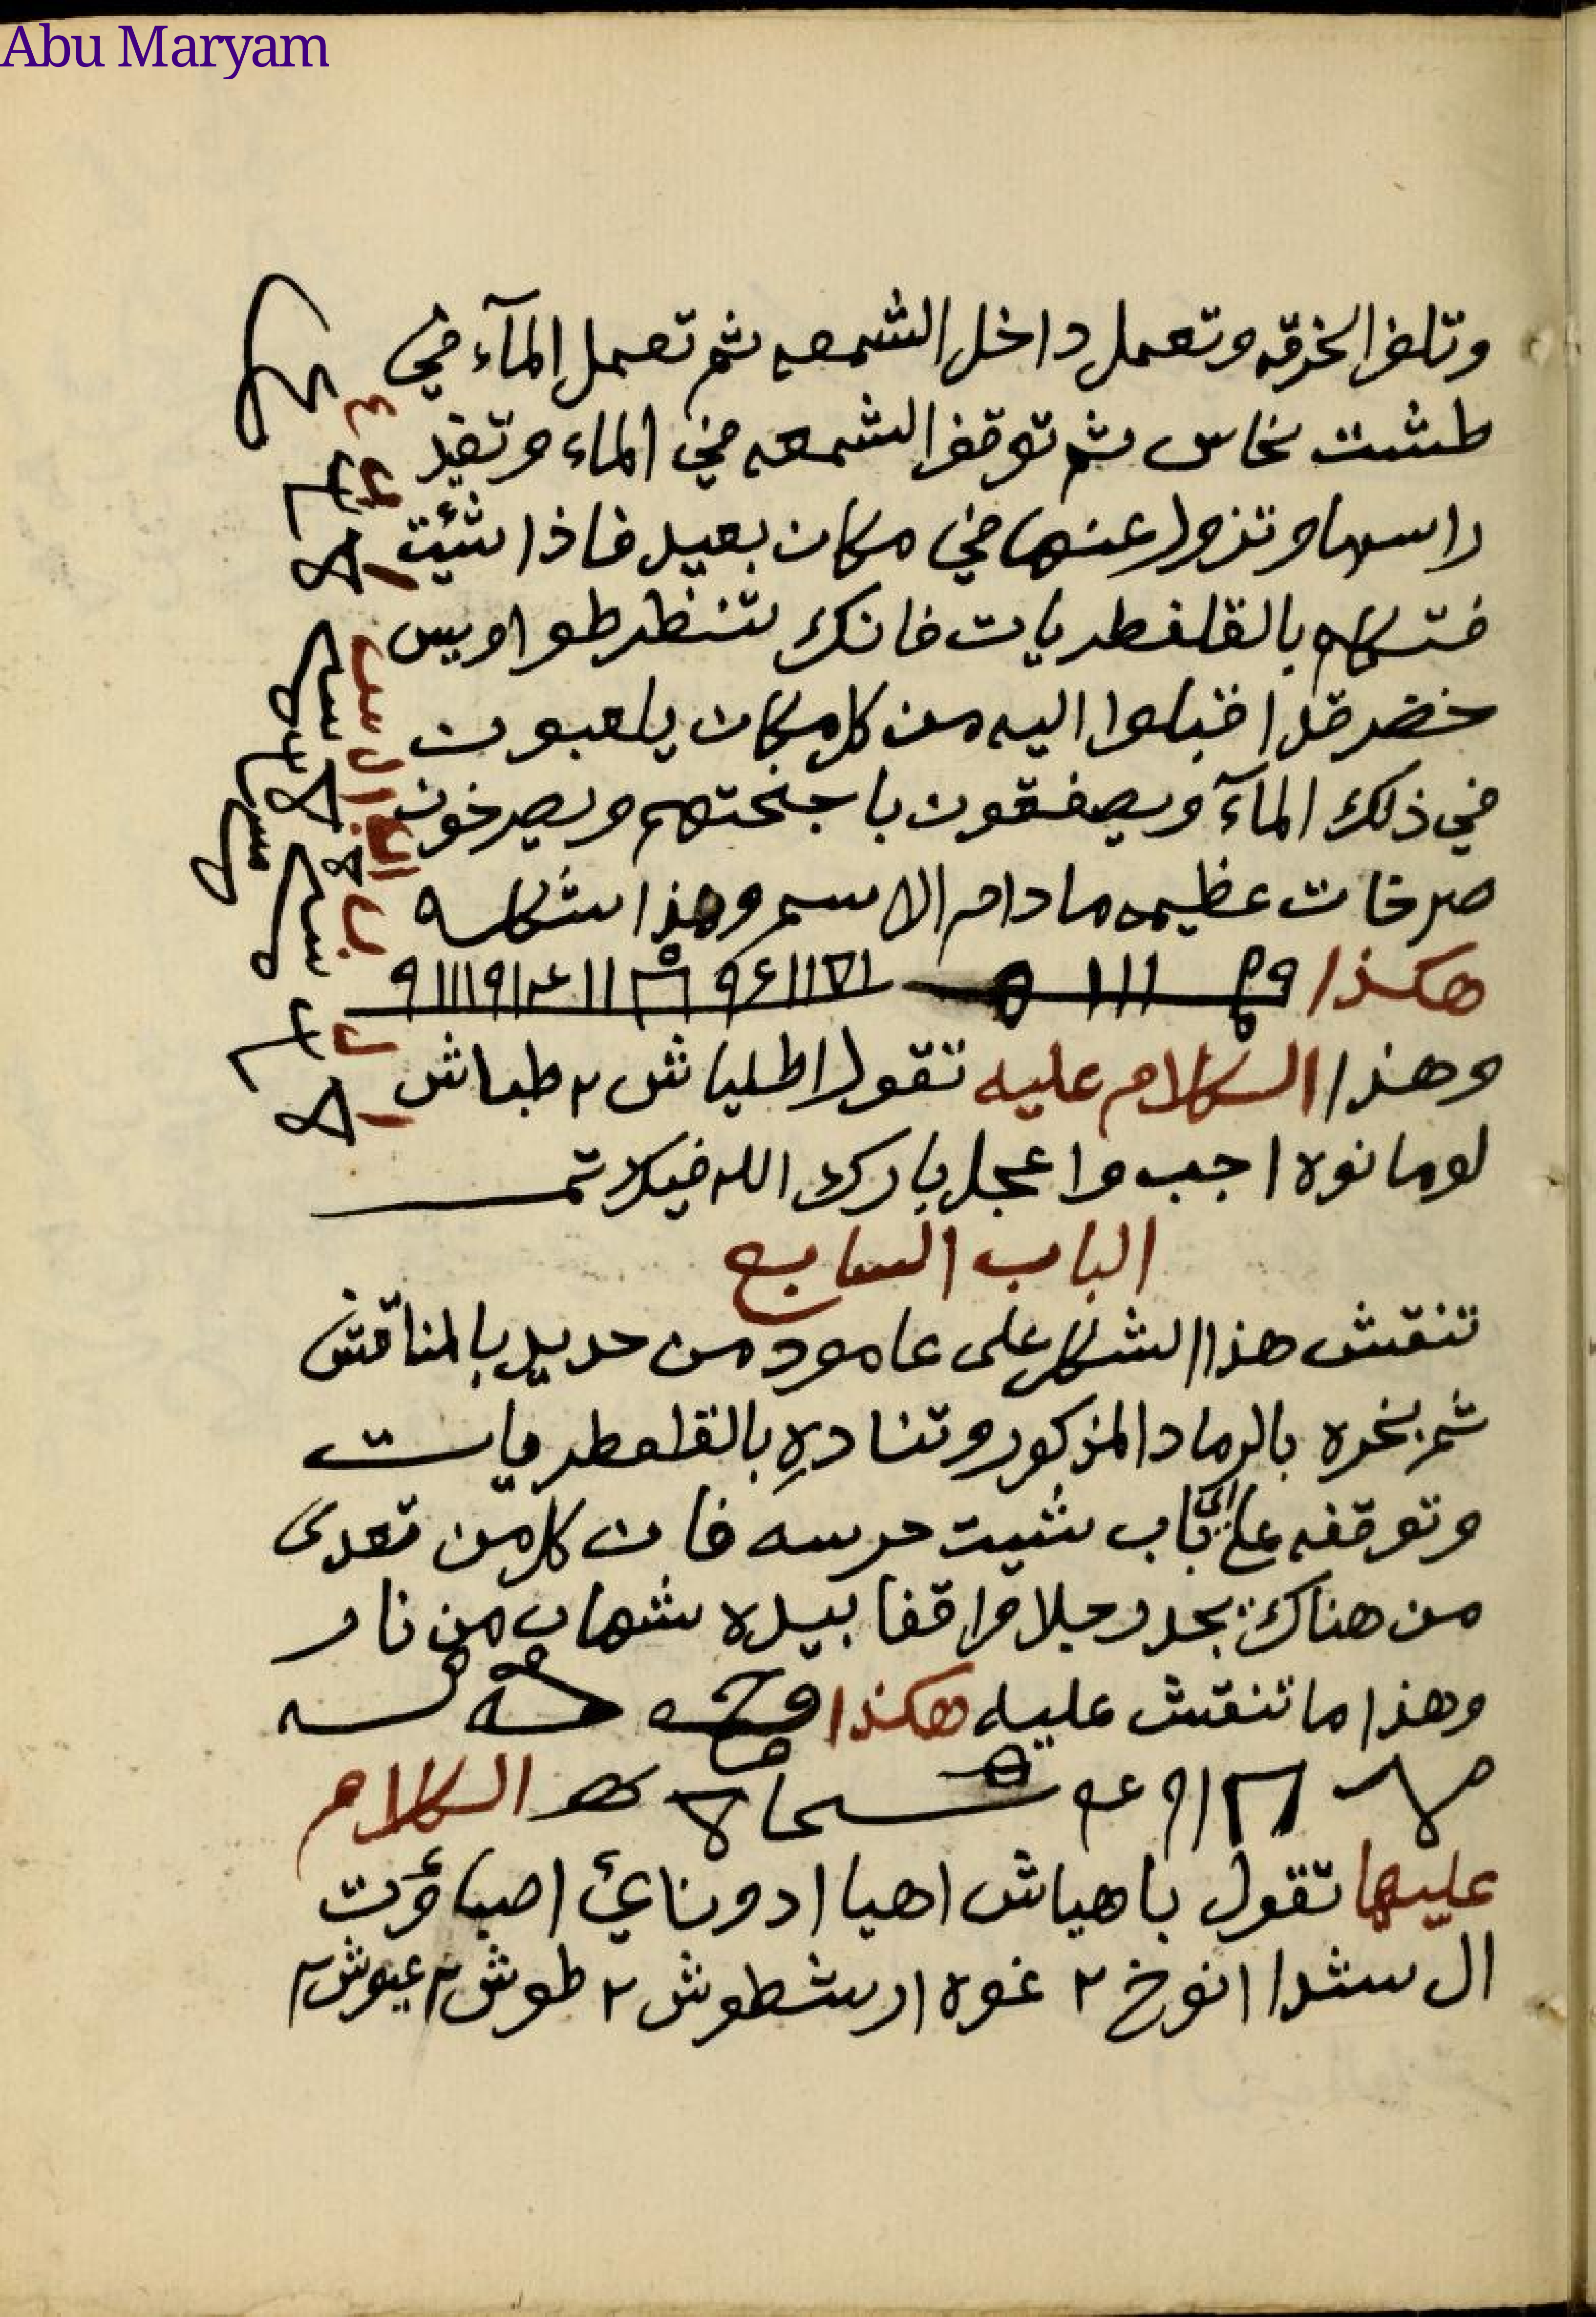 Abu Maryam
وتلف الخرقه وتعمل داخل الشمعه ثم تعمل المآء في
طشت نحاس ثم توقف الشمعه في الماء وتقد
راسها وتزول عنها في مكان بعيد فاذا شئت
فتكلم بالقلفطريات فانك تنظر طواويس
خضر قد اقبلوا اليه من كل مكان يلعبون
في ذلك المآء ويصفقون باجنحتهم ويصرخون
صرخات عظيمه مادام الاسم وهذا شكله
هكذا
وهذا الكلام عليه تقول اطلياش ٢ طباش
لومانوه اجب واعجل بارك الله فيك تم
الباب السابع
تنقش هذا الشكل على عامود من حديد بالمناقش
ثم بخره بالرماد المذكور وتناديه بالقلفطريات
وتوقفه على اي باب شيت حرسه فان كل من تعدى
من هناك يجد رجلا واقفا بيده شهاب من نار
وهذا ما تنقش عليه هكذا
الكلام
عليها تقول باهياش اهيا ادونائ اصباؤت
ال شدا انوخ ٢ غوه ارشطوش ٢ طوش ٢ عيوش ٢